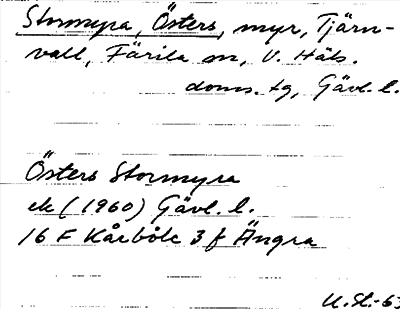 Stormyra, Östers, myr, Tjärn-
vall, Färila sn, V. Häls.
doms. tg, Gävl. l.
Östers Stormyra
ek (1960) Gävl. l.
16 F Kårböle 3 f Ängra
U.St.-63